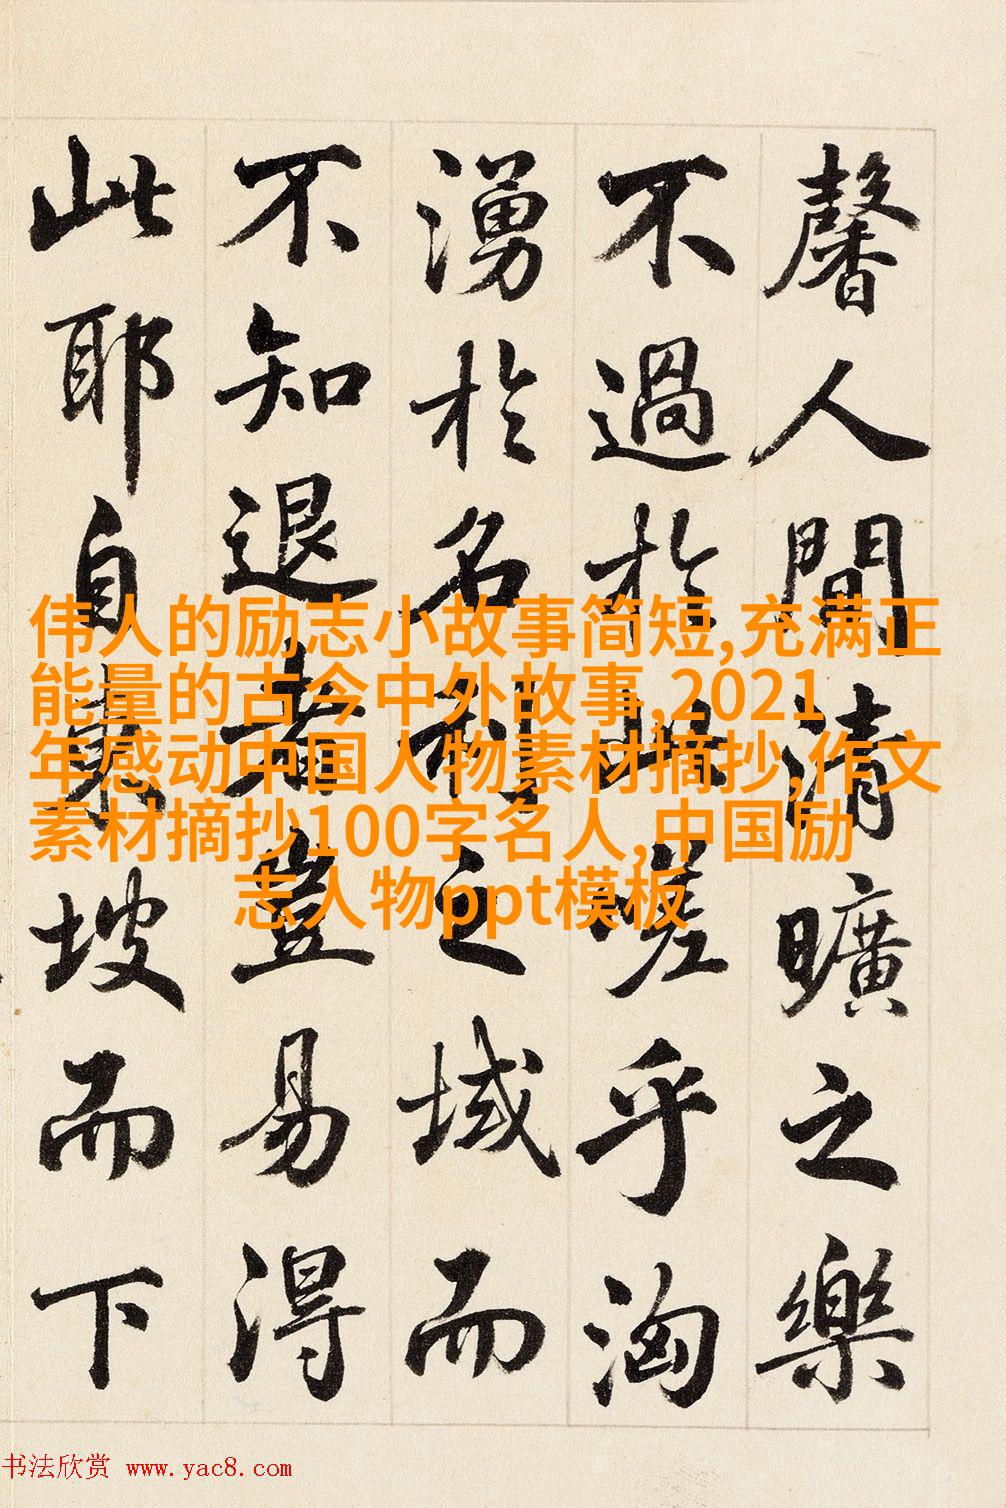 馨人間清曠之樂
不過於此嗟乎洶
湧於名利之域而
不知退者豈易得
此耶自東坡而下
伟人的励志小故事简短,充满正
能量的古今中外故事,2021
年感动中国人物素材摘抄,作文
素材摘抄100字名人,中国励
志人物ppt模板
书法欣赏 www.yac8.com